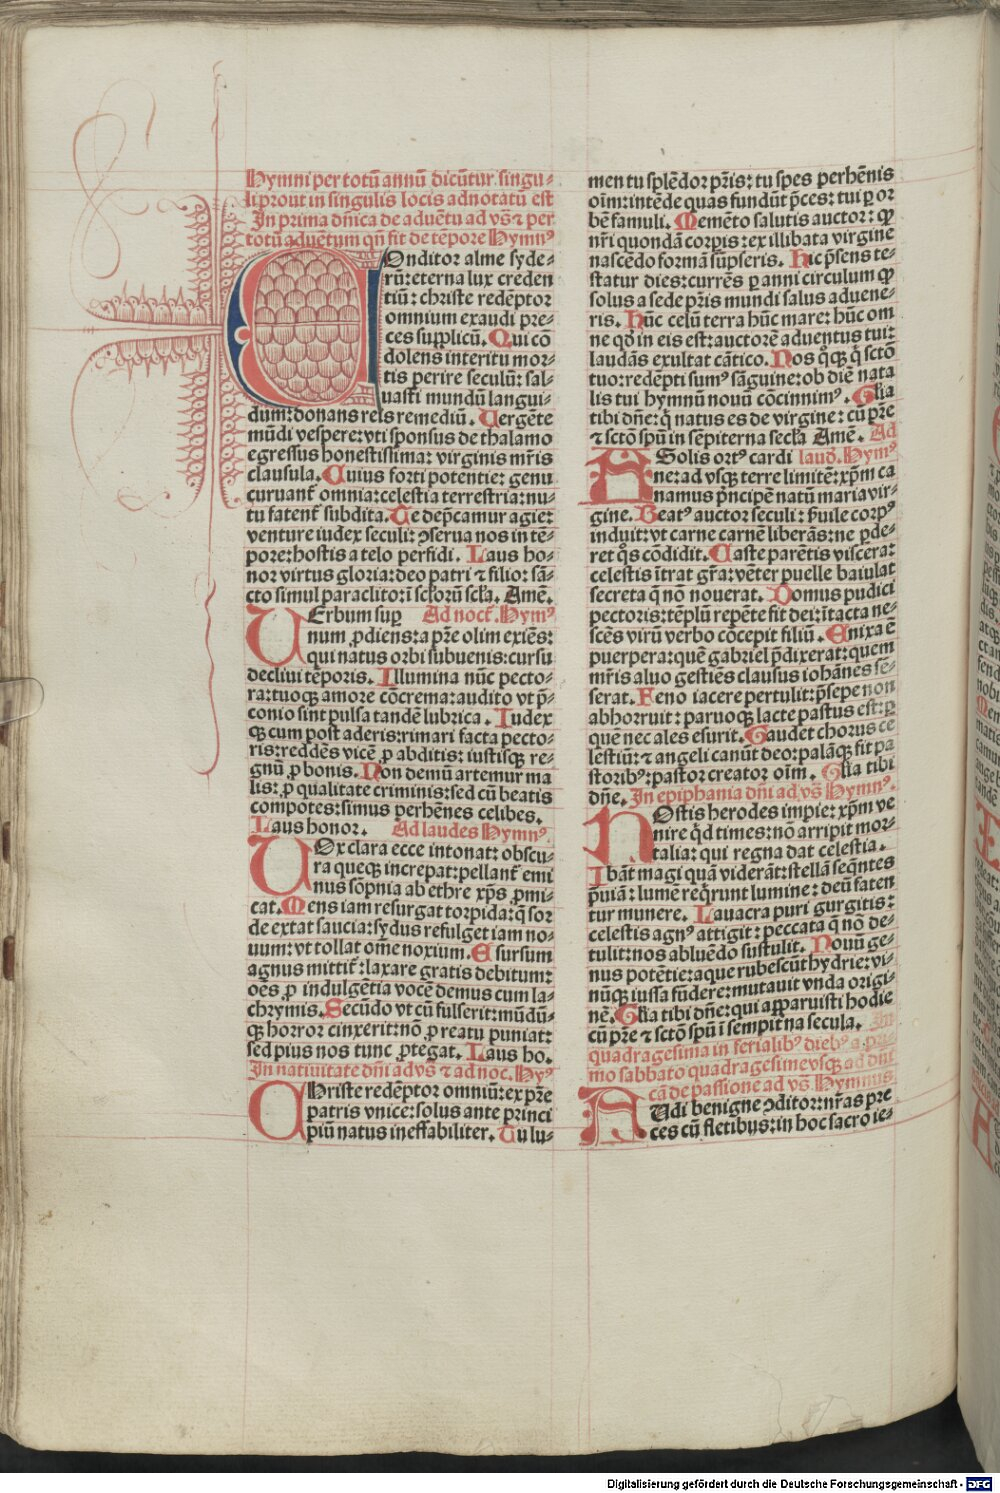 Hymni per totū annū dicūtur singu-
li prout in singulis locis adnotatū est
In prima dn̄ica de aduētu ad vs̄ ⁊ per
totū aduētum qn̄ fit de tēpore Hymnꝰ
COnditor alme syde-
rū: eterna lux creden
tiū: christe redēptor
omnium exaudi pre-
ces supplicū. Qui cō
dolens interitu mor-
tis perire seculū: sal-
uasti mundū langui-
dum: donans reis remediū. Uergēte
mūdi vespere: vti sponsus de thalamo
egressus honestissima: virginis mr̄is
clausula. Cuius forti potentie: genu
curuant̄ omnia: celestia terrestria: nu-
tu fatent̄ subdita. Te dep̄camur agie:
venture iudex seculi: ꝯserua nos in tē-
pore: hostis a telo perfidi. Laus ho-
nor virtus gloria: deo patri ⁊ filio: sā-
cto simul paraclito: ī sclorū scla. Amē.
UErbum suꝑ Ad noct̄. Hymꝰ
num ꝓdiens: a pr̄e olim exiēs:
qui natus orbi subuenis: cursu
decliui tēporis. Illumina nūc pecto-
ra: tuoqꝫ amore cōcrema: audito vt p̄-
conio sint pulsa tandē lubrica. Iudex
qꝫ cum post aderis: rimari facta pecto-
ris: reddēs vicē ꝓ abditis: iustisqꝫ re-
gnū ꝓ bonis. Non demū artemur ma
lis: ꝓ qualitate criminis: sed cū beatis
compotes: simus perhēnes celibes.
Laus honor. Ad laudes Hymnꝰ
UOx clara ecce intonat: obscu-
ra queqꝫ increpat: pellant̄ emi
nus sōpnia ab ethre xp̄s ꝓmi-
cat. Mens iam resurgat torpida: q̄ sor
de extat saucia: sydus refulget iam no-
uum: vt tollat om̄e noxium. E sursum
agnus mittit̄: laxare gratis debitum:
oēs ꝓ indulgētia vocē demus cum la-
chrymis. Secūdo vt cū fulserit: mūdū-
qꝫ horror cinxerit: nō ꝓ reatu puniat:
sed pius nos tunc ꝓtegat. Laus ho.
In natiuitate dn̄i ad vs̄ ⁊ ad noc. Hyꝰ
CHriste redēptor omniū: ex pr̄e
patris vnice: solus ante princi
piū natus ineffabiliter. Tu lu-
men tu splēdor pr̄is: tu spes perhēnis
oīm: intēde quas fundūt p̄ces: tui ꝑ or
bē famuli. Memēto salutis auctor: qꝫ
nr̄i quondā corꝑis: ex illibata virgine
nascēdo formā sūpseris. Hic p̄sens te-
statur dies: currēs ꝑ anni circulum qꝫ
solus a sede pr̄is mundi salus aduene-
ris. Hūc celū terra hūc mare: hūc om
ne qd̄ in eis est: auctorē aduentus tui:
laudās exultat cātico. Nos qꝫqꝫ q̄ sctō
tuo: redēpti sumꝰ sāguine: ob diē nata
lis tui hymnū nouū cōcinnimꝰ. Glīa
tibi dn̄e: q̄ natus es de virgine: cū pr̄e
⁊ sctō spū in sēpiterna secla Amē. Ad
A Solis ortꝰ cardi laud̄. Hymꝰ
ne: ad vsqꝫ terre limitē: xp̄m ca
namus p̄ncipē natū maria vir-
gine. Beatꝰ auctor seculi: ẜuile corpꝰ
induit: vt carne carnē liberās: ne ꝑde-
ret q̊s cōdidit. Caste parētis viscera:
celestis ītrat gr̄a: vēter puelle baiulat
secreta q̄ nō nouerat. Domus pudici
pectoris: tēplū repēte fit dei: ītacta ne-
scēs virū verbo cōcepit filiū. Enixa ē
puerpera: quē gabriel p̄dixerat: quem
mr̄is aluo gestiēs clausus iohānes sē-
serat. Feno iacere pertulit: p̄sepe non
abhorruit: paruoqꝫ lacte pastus est: ꝑ
quē nec ales esurit. Gaudet chorus ce
lestiū: ⁊ angeli canūt deo: palāqꝫ fit pa
storibꝰ: pastor creator oīm. Glīa tibi
dn̄e. In epiphania dn̄i ad vs̄ Hymnꝰ.
HOstis herodes impie: xp̄m ve
nire qd̄ times: nō arripit mor-
talia: qui regna dat celestia.
Ibāt magi quā viderāt: stellā seqn̄tes
p̄uiā: lumē req̄runt lumine: deū faten
tur munere. Lauacra puri gurgitis:
celestis agnꝰ attigit: peccata q̄ nō de-
tulit: nos abluēdo sustulit. Nouū ge-
nus potētie: aque rubescūt hydrie: vi-
nūqꝫ iussa fūdere: mutauit vnda origi-
nē. Glīa tibi dn̄e: qui apparuisti hodie
cū pr̄e ⁊ sctō spū ī sempit̄na secula. In
quadragesima in ferialibꝰ diebꝰ a pri
mo sabbato quadragesime vsqꝫ ad dn̄i
cā de passione ad vs̄. Hymnus
AUdi benigne ꝯditor: nr̄as pre
ces cū fletibus: in hoc sacro ie-
Digitalisierung gefördert durch die Deutsche Forschungsgemeinschaft - DFG